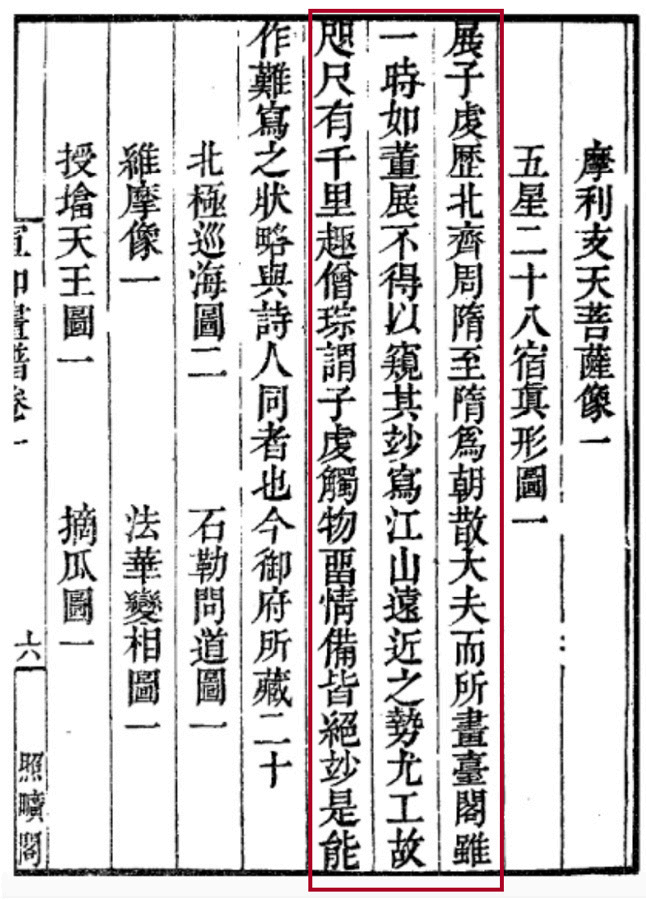 摩利支天菩薩像一
五星二十八宿真形圖一
展子虔歷北齊周隋至隋為朝散大夫而所畫臺閣雖
一時如董展不得以窺其玅寫江山遠近之勢尤工故
咫尺有千里趣僧琮謂子虔觸物畱情備皆絕玅是能
作難寫之狀略與詩人同者也今御府所藏二十
北極巡海圖二 石勒問道圖一
維摩像一 法華變相圖一
授塔天王圖一 摘瓜圖一
宣和畫譜卷一 六 照曠閣